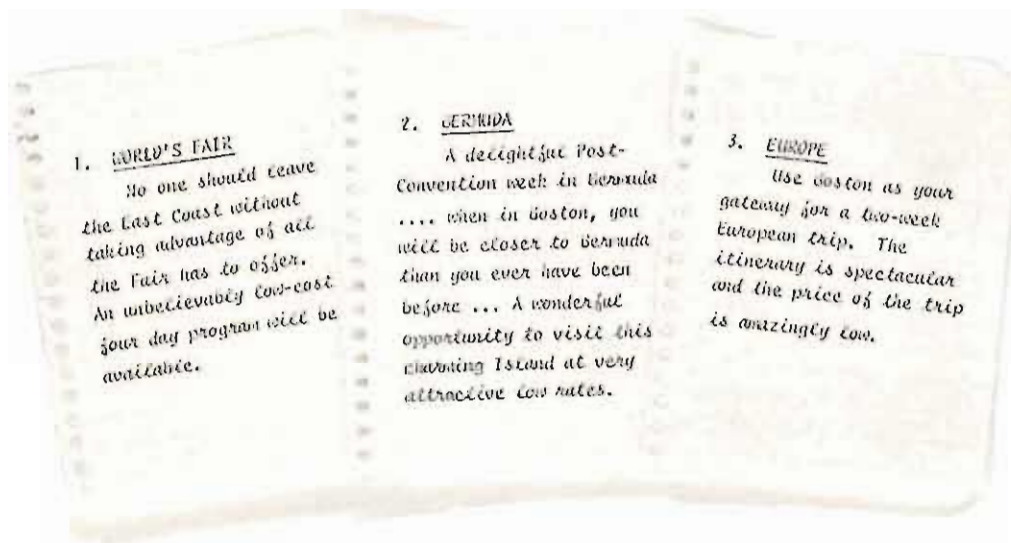 1. WORLD'S FAIR
No one should leave
the East Coast without
taking advantage of all
the Fair has to offer.
An unbelievably low-cost
four day program will be
available.
2. BERMUDA
A delightful Post-
Convention week in Bermuda
.... when in Boston, you
will be closer to Bermuda
than you ever have been
before ... A wonderful
opportunity to visit this
charming Island at very
attractive low rates.
3. EUROPE
Use Boston as your
gateway for a two-week
European trip. The
itinerary is spectacular
and the price of the trip
is amazingly low.